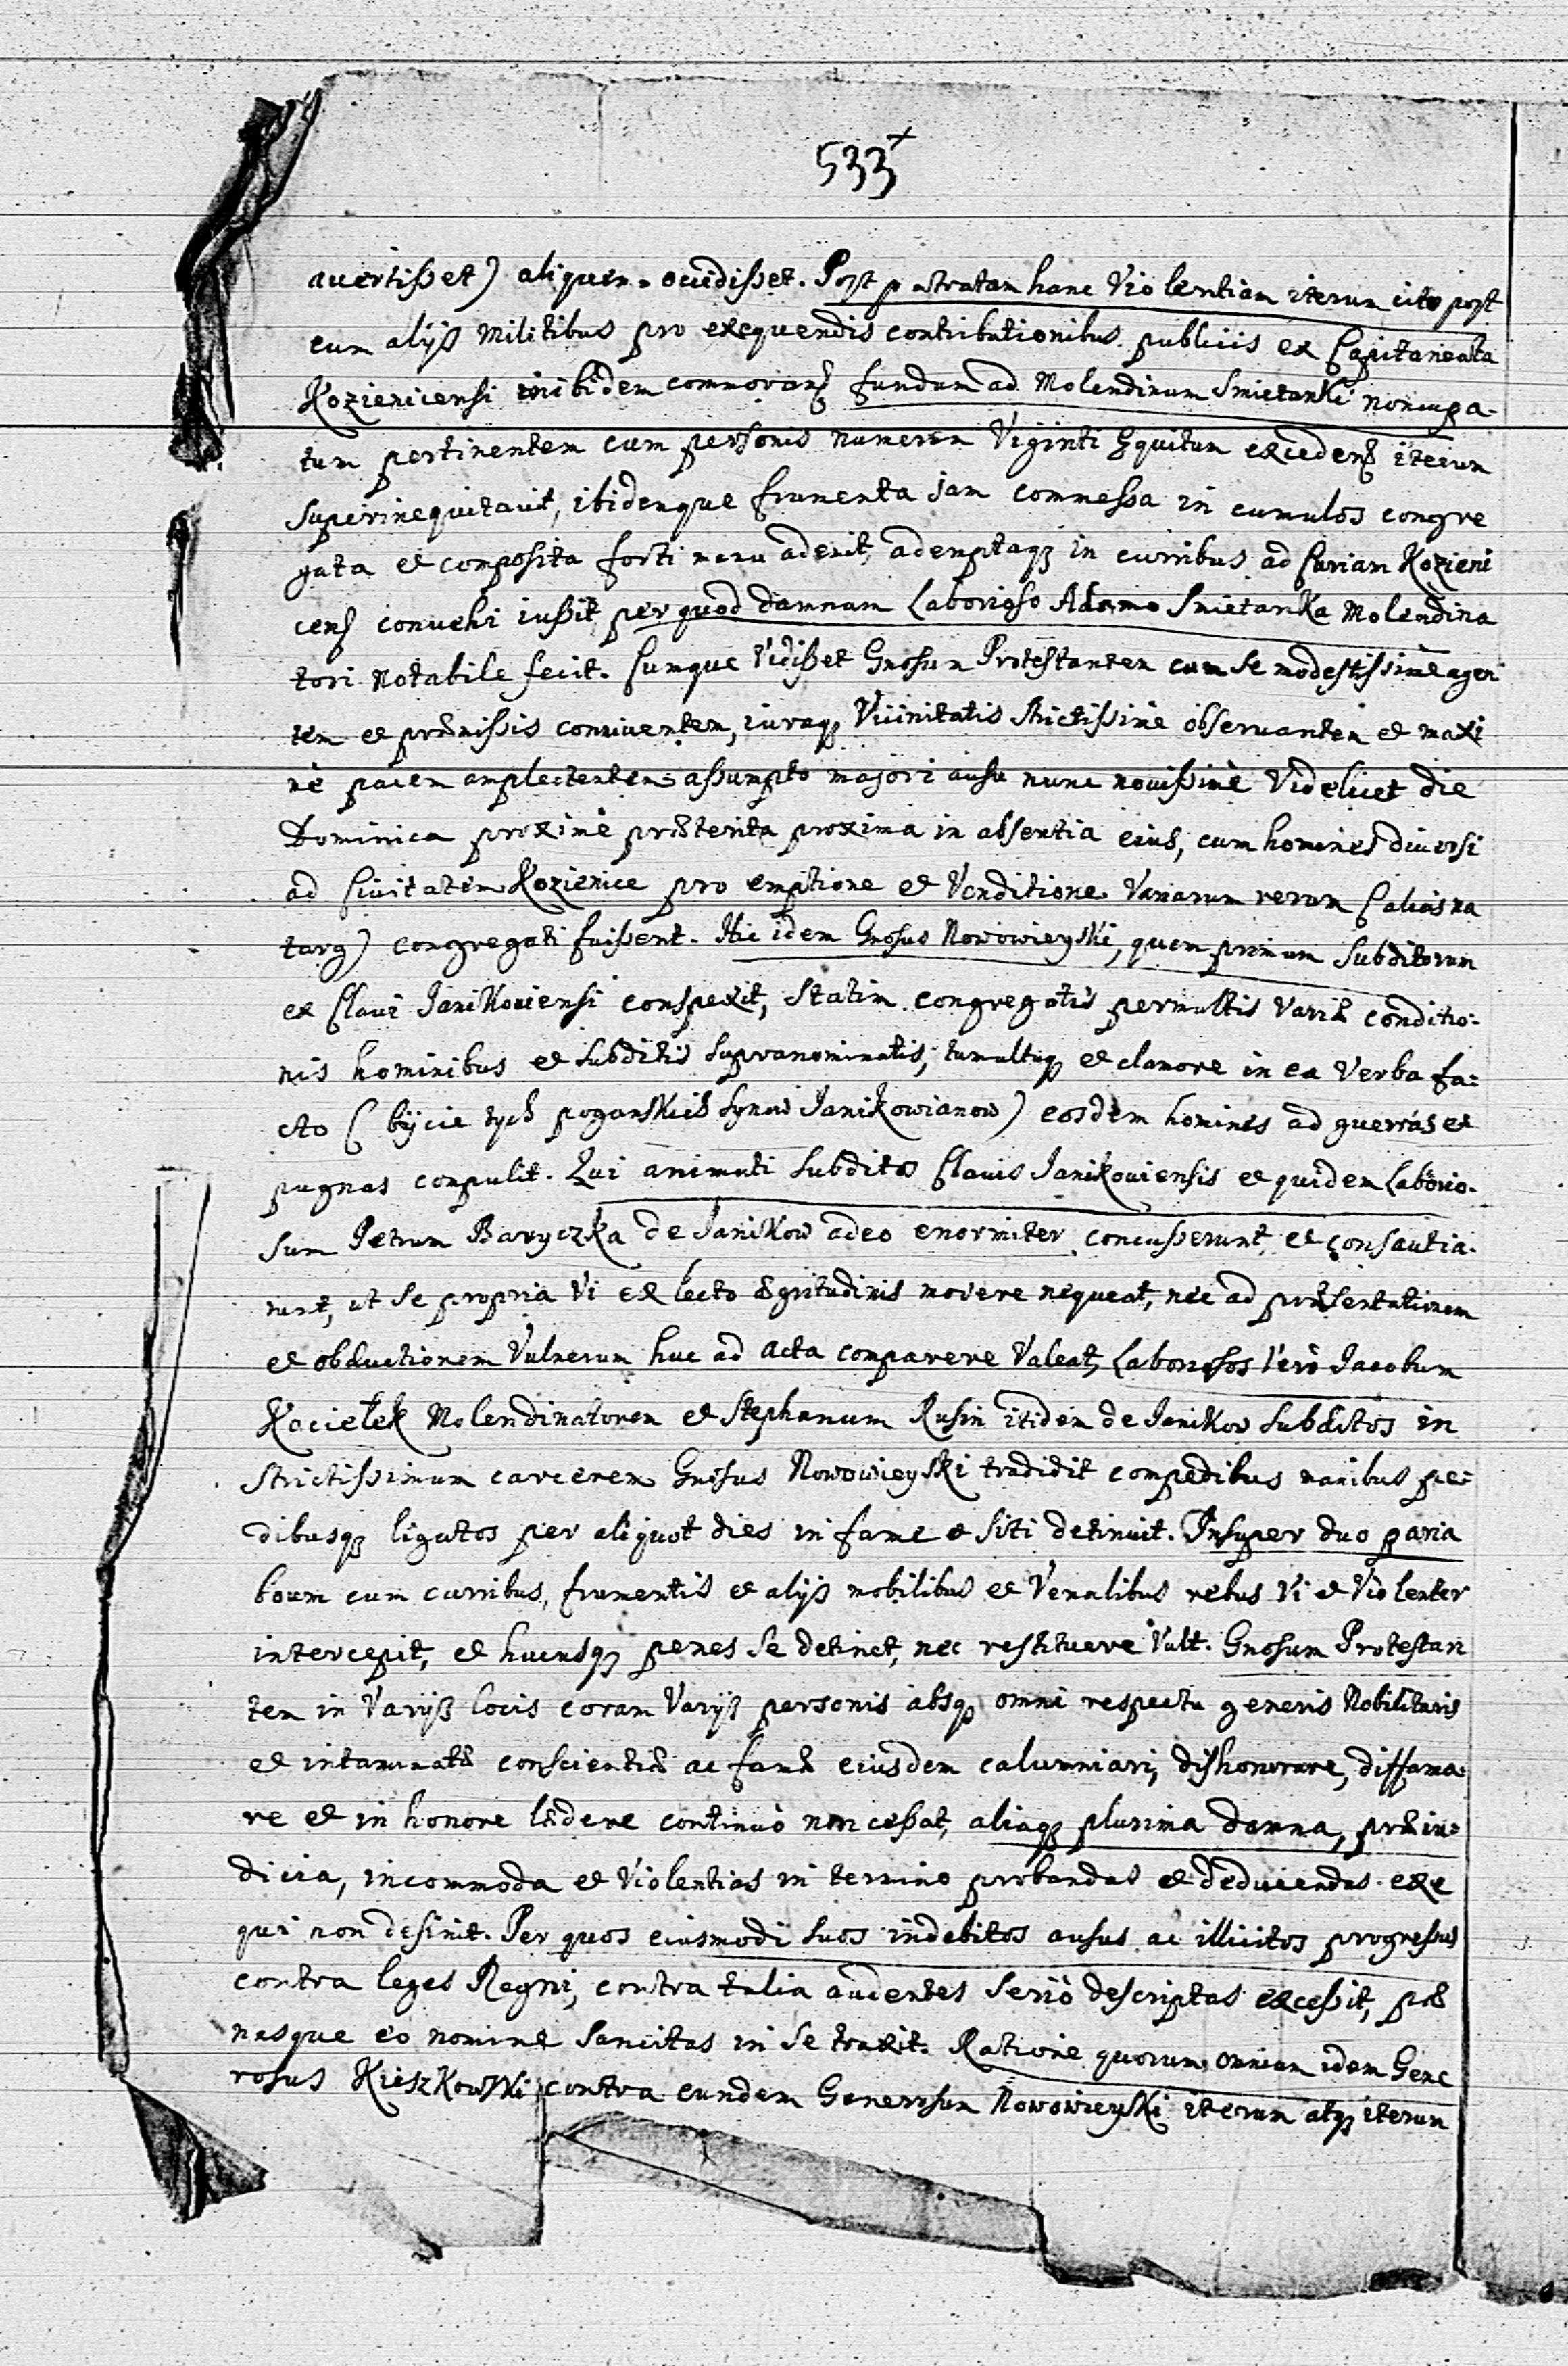 533+
auertisset) aliquem occidisset. Post patratam hanc Violentiam iterum cito post
cum alijs Militibus pro exequendis contributionibus publicis ex Capitaneatu
Kozienicensi inibidem commorans fundum ad Molendinum Smietanki noncupa-
tum pertinentem cum personis numerum Viginti Equitum excedens iterum
Superinequitauit, ibidemque frumenta jam commessa in cumulos congre
gata et composita forti manu ademit, ademptaqz in curribus ad Curiam Kozieni
cens conuehi iussit, per quod damnum Laborioso Adamo Smietanka Molendina
tori notabile fecit. Cumque Vidisset Gnosum Protestantem cum se modestissime agen
tem et præmissis conniventem, iuraqz Vicinitatis strictissime obseruantem et maxi
mè pacem amplectentem assumpto majori ausu nunc nouissimè Videlicet die
Dominica proximè præterita proxima in absentia eius, cum homines diuersi
ad Ciuitatem Kozienice pro emptione et Venditione Variarum rerum (alias na
targ) congregati fuissent. Hic idem Gnosus Nowowieyski, quem primum Subditorum
ex Claui Janikouiensi conspexit, Statim congregatis permultis Variæ conditio-
nis hominibus et Subditis supranominatis, tumultuqz et clamore in ea Verba fa-
cto (biycie tych poganskich synow Janikowianow) eosdem homines ad guerras et
pugnas compulit. Qui animati Subditos Clauis Janikouiensis et quidem Laborio-
sum Petrum Baryczka de Janikow adeo enormiter concusserunt et consautia-
runt, ut se propria Vi ex lecto ægritudinis movere nequeat, nec ad præsentationem
et obductionem Vulnerum huc ad Acta comparere Valeat, Laboriosos Verò Jacobum
Kociełek Molendinatorem et Stephanum Rusin itidem de Janikow subditos in
Strictissimum carcerem Gnosus Nowowieyski tradidit compedibus manibus pe-
dibusqz ligatos per aliquot dies in fame et siti detinuit. Insuper duo paria
boum cum curribus, frumentis et alijs mobilibus et Venalibus rebus Vi et Violenter
intercepit, et hucusqz penes se detinet, nec restituere Vult. Gnosum Protestan
tem in Varijs locis coram Varijs personis absqz omni respectu generis Nobilitaris
et intaminatæ conscientiæ ac famæ eiusdem calumniari, dishonorare, diffama-
re et in honore lædere continuò non cessat, aliaqz plurima damna, præiu-
dicia, incommoda et Violentias in termino probandas et deducendas exe
qui non desinit. Per quos eiusmodi suos indebitos ausus ac illicitos progressus
contra leges Regni, contra talia audentes seriò descriptas excessit, pœ
nasque eo nomine sancitas in se traxit. Ratione quorum omnium idem Gene
rosus Kieszkowski contra eundem Generosum Nowowieyski iterum atqz iterum